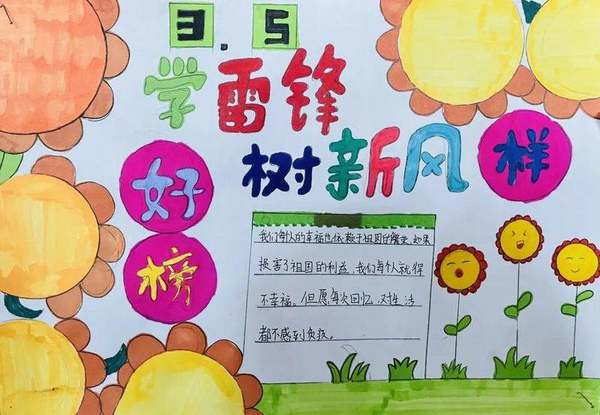 3.5
学雷锋
树新风样
好
榜
我们每个人的幸福也依赖于祖国的繁荣,如果
损害了祖国的利益,我们每个人就得
不幸福。但愿每次回忆,对生活
都不感到负疚。